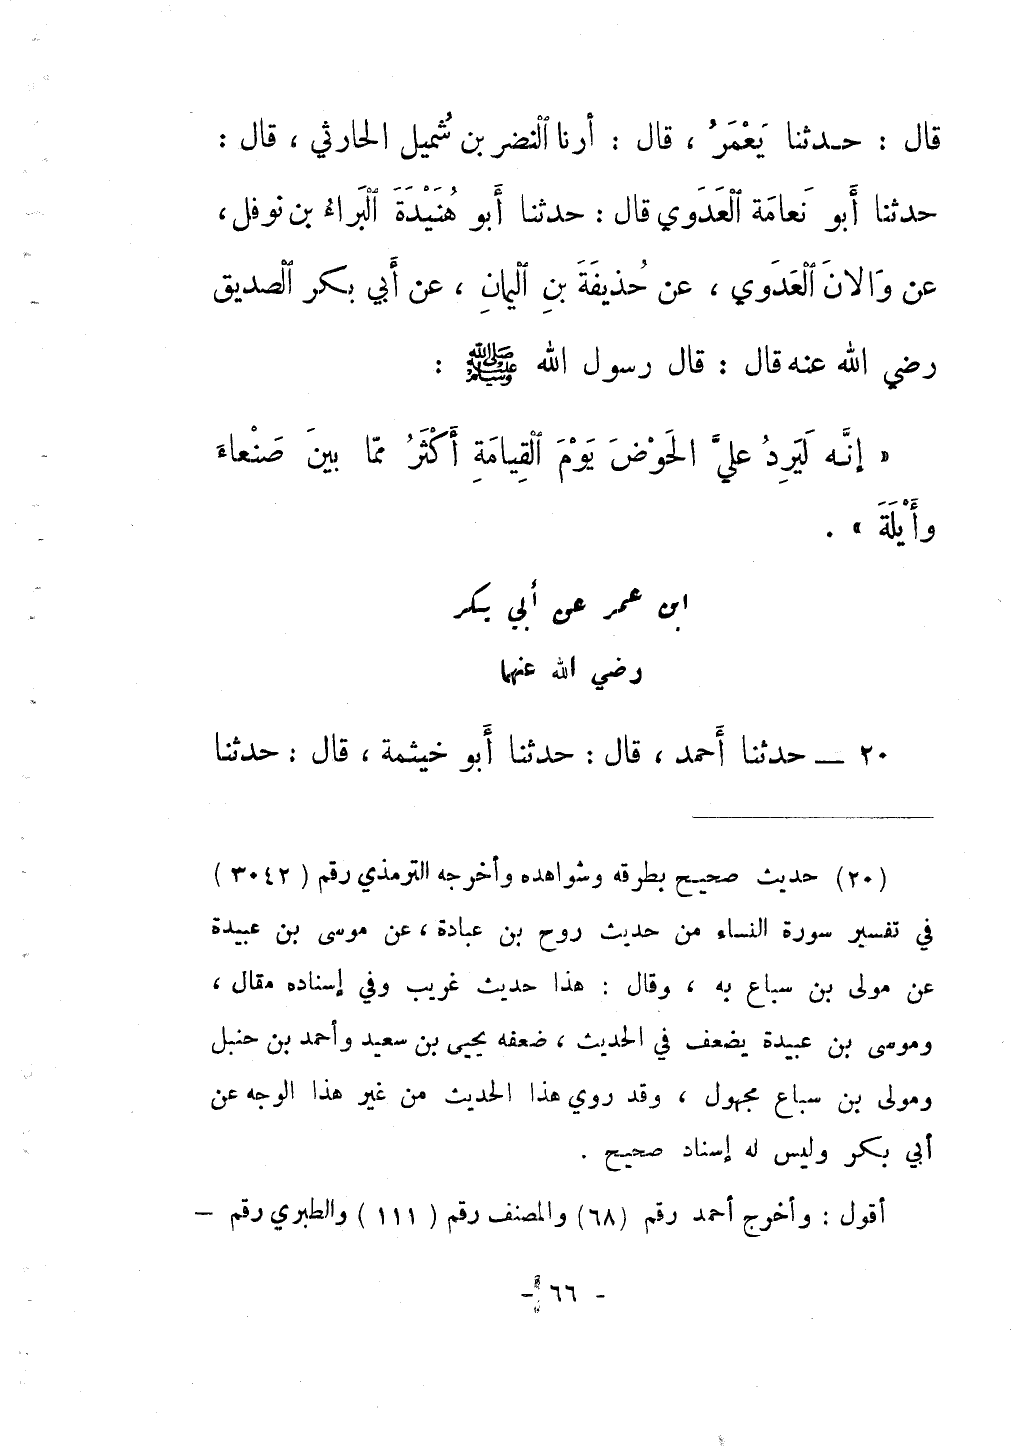 قال : حـدثنا يَعْمَرُ ، قال : أرنا النضر بن شُميل الحارثي ، قال :
حدثنا أَبو نَعامَة العَدَوي قال : حدثنا أَبو هُنَيْدَةَ البَراءُ بن نوفل ،
عن وَالانَ العَدَوي ، عن حُذيفَةَ بنِ اليمانِ ، عن أَبي بكر الصديق
رضي الله عنه قال : قال رسول الله ﷺ :
« إنَّه لَيَرِدُ عليَّ الحَوْضَ يَوْمَ القِيامَةِ أَكْثَرُ ممّا بينَ صَنْعاءَ
وأَيْلَةَ » .
ابن عمر عن أبي بكر
رضي الله عنهما
٢٠ ــ حدثنا أَحمد ، قال : حدثنا أَبو خيثمة ، قال : حدثنا
(٢٠) حديث صحيح بطرقه وشواهده وأخرجه الترمذي رقم ( ٣٠٤٢ )
في تفسير سورة النساء من حديث روح بن عبادة ، عن موسى بن عبيدة
عن مولى بن سباع به ، وقال : هذا حديث غريب وفي إسناده مقال ،
وموسى بن عبيدة يضعف في الحديث ، ضعفه يحيى بن سعيد وأحمد بن حنبل
ومولى بن سباع مجهول ، وقد روي هذا الحديث من غير هذا الوجه عن
أبي بكر وليس له إسناد صحيح .
أقول : وأخرج أحمد رقم (٦٨) والمصنف رقم ( ١١١ ) والطبري رقم –
- ٦٦ -